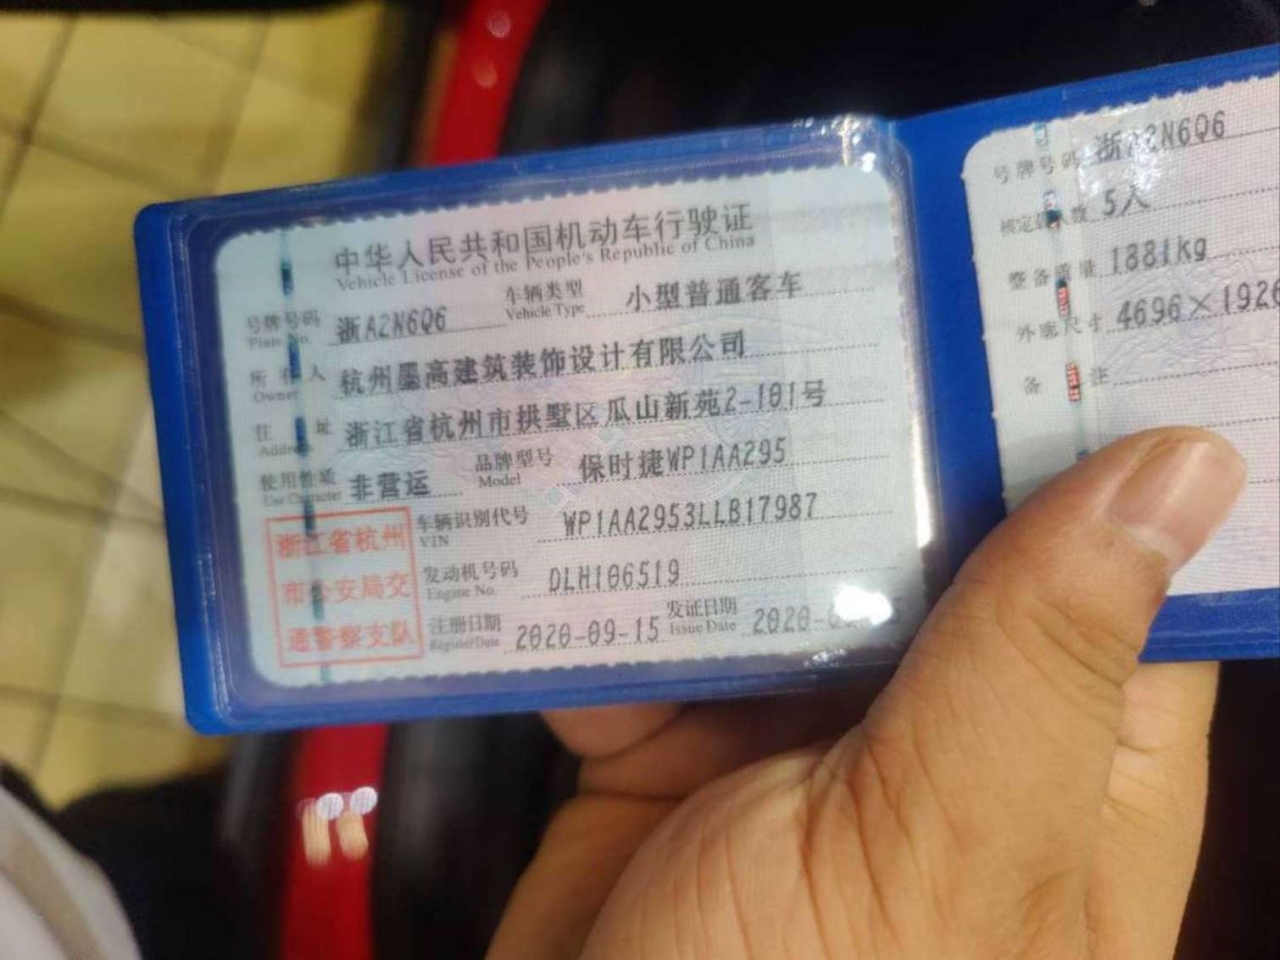 中华人民共和国机动车行驶证
Vehicle License of the People's Republic of China
号牌号码 浙A2N6Q6 车辆类型 小型普通客车
Plate No. Vehicle Type
所有人 杭州墨高建筑装饰设计有限公司
Owner
住址 浙江省杭州市拱墅区瓜山新苑2-101号
Address
使用性质 非营运 品牌型号 保时捷WP1AA295
Use Character Model
车辆识别代号 WP1AA2953LLB17987
VIN
发动机号码 DLH106519
Engine No.
注册日期 2020-09-15 发证日期 2020-
Register Date Issue Date
浙江省杭州
市公安局交
通警察支队
号牌号码 浙A2N6Q6
核定载人数 5人
整备质量 1881kg
外廓尺寸 4696×1926
备注